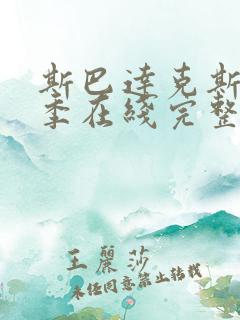 斯巴達克斯
季在綫完整
王麗莎
未經同意禁止轉載